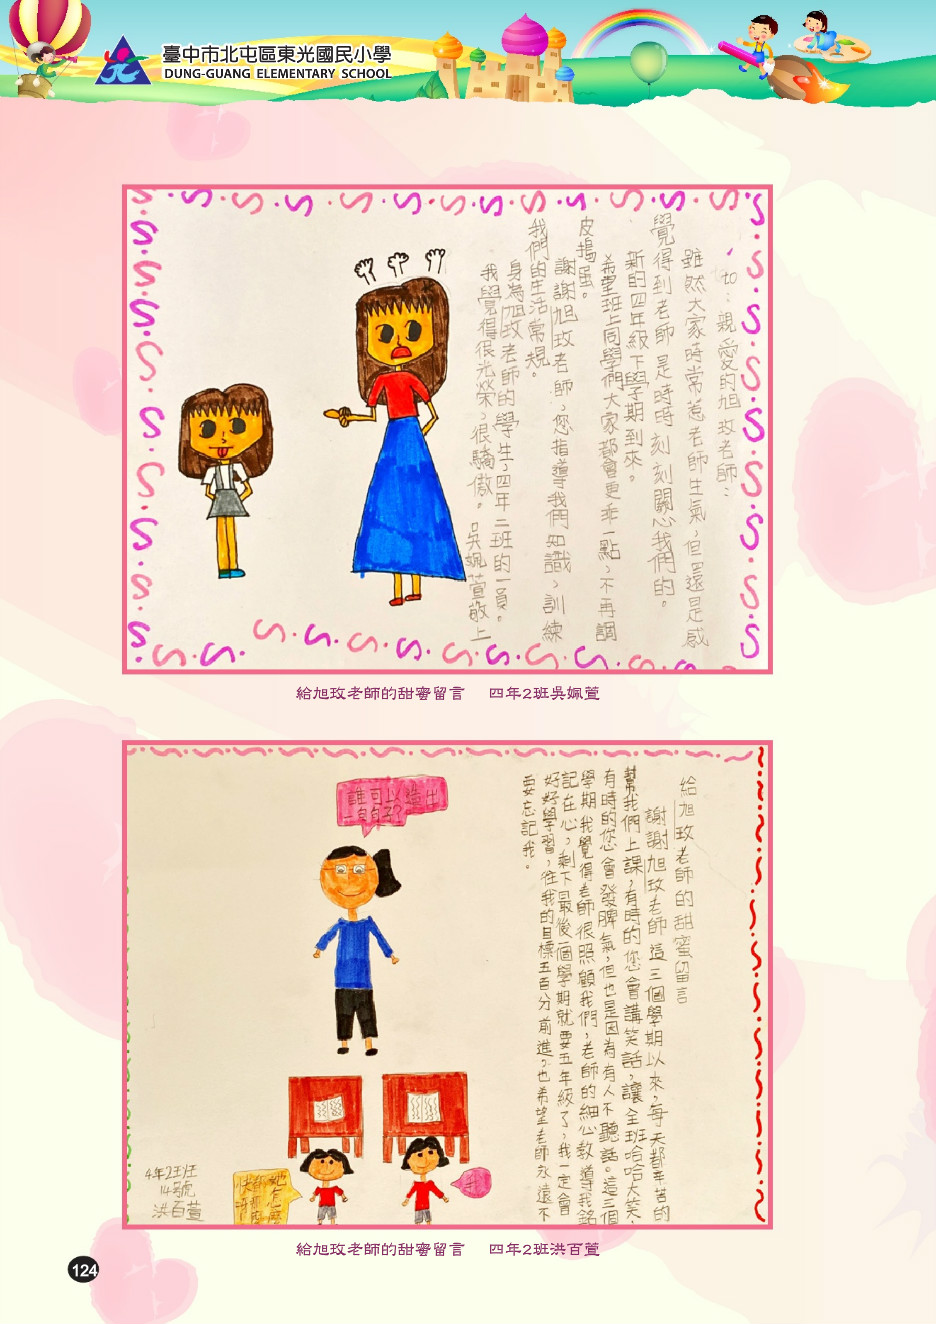 臺中市北屯區東光國民小學
DUNG-GUANG ELEMENTARY SCHOOL
to：親愛的旭玫老師：
雖然大家時常惹老師生氣，但還是感
覺得到老師是時時刻刻關心我們的。
新的四年級下學期到來。
希望班上同學們大家都會更乖一點，不再調
皮搗蛋。
謝謝旭玫老師，您指導我們知識，訓練
我們的生活常規。
身為旭玫老師的學生，四年二班的一員。
我覺得很光榮，很驕傲。吳珮萱敬上
給旭玫老師的甜蜜留言 四年2班吳珮萱
給旭玫老師的甜蜜留言
謝謝旭玫老師這三個學期以來，每天都辛苦的
幫我們上課，有時的您會講笑話，讓全班哈哈大笑，
有時的您會發脾氣，但也是因為有人不聽話。這三個
學期我覺得老師很照顧我們，老師的細心教導我銘
記在心，剩下最後一個學期就要五年級了，我一定會
好好學習，往我的目標五百分前進，也希望老師永遠不
要忘記我。
誰可以造出
一句句子?
我
4年2班
14號
洪百萱
給旭玫老師的甜蜜留言 四年2班洪百萱
124